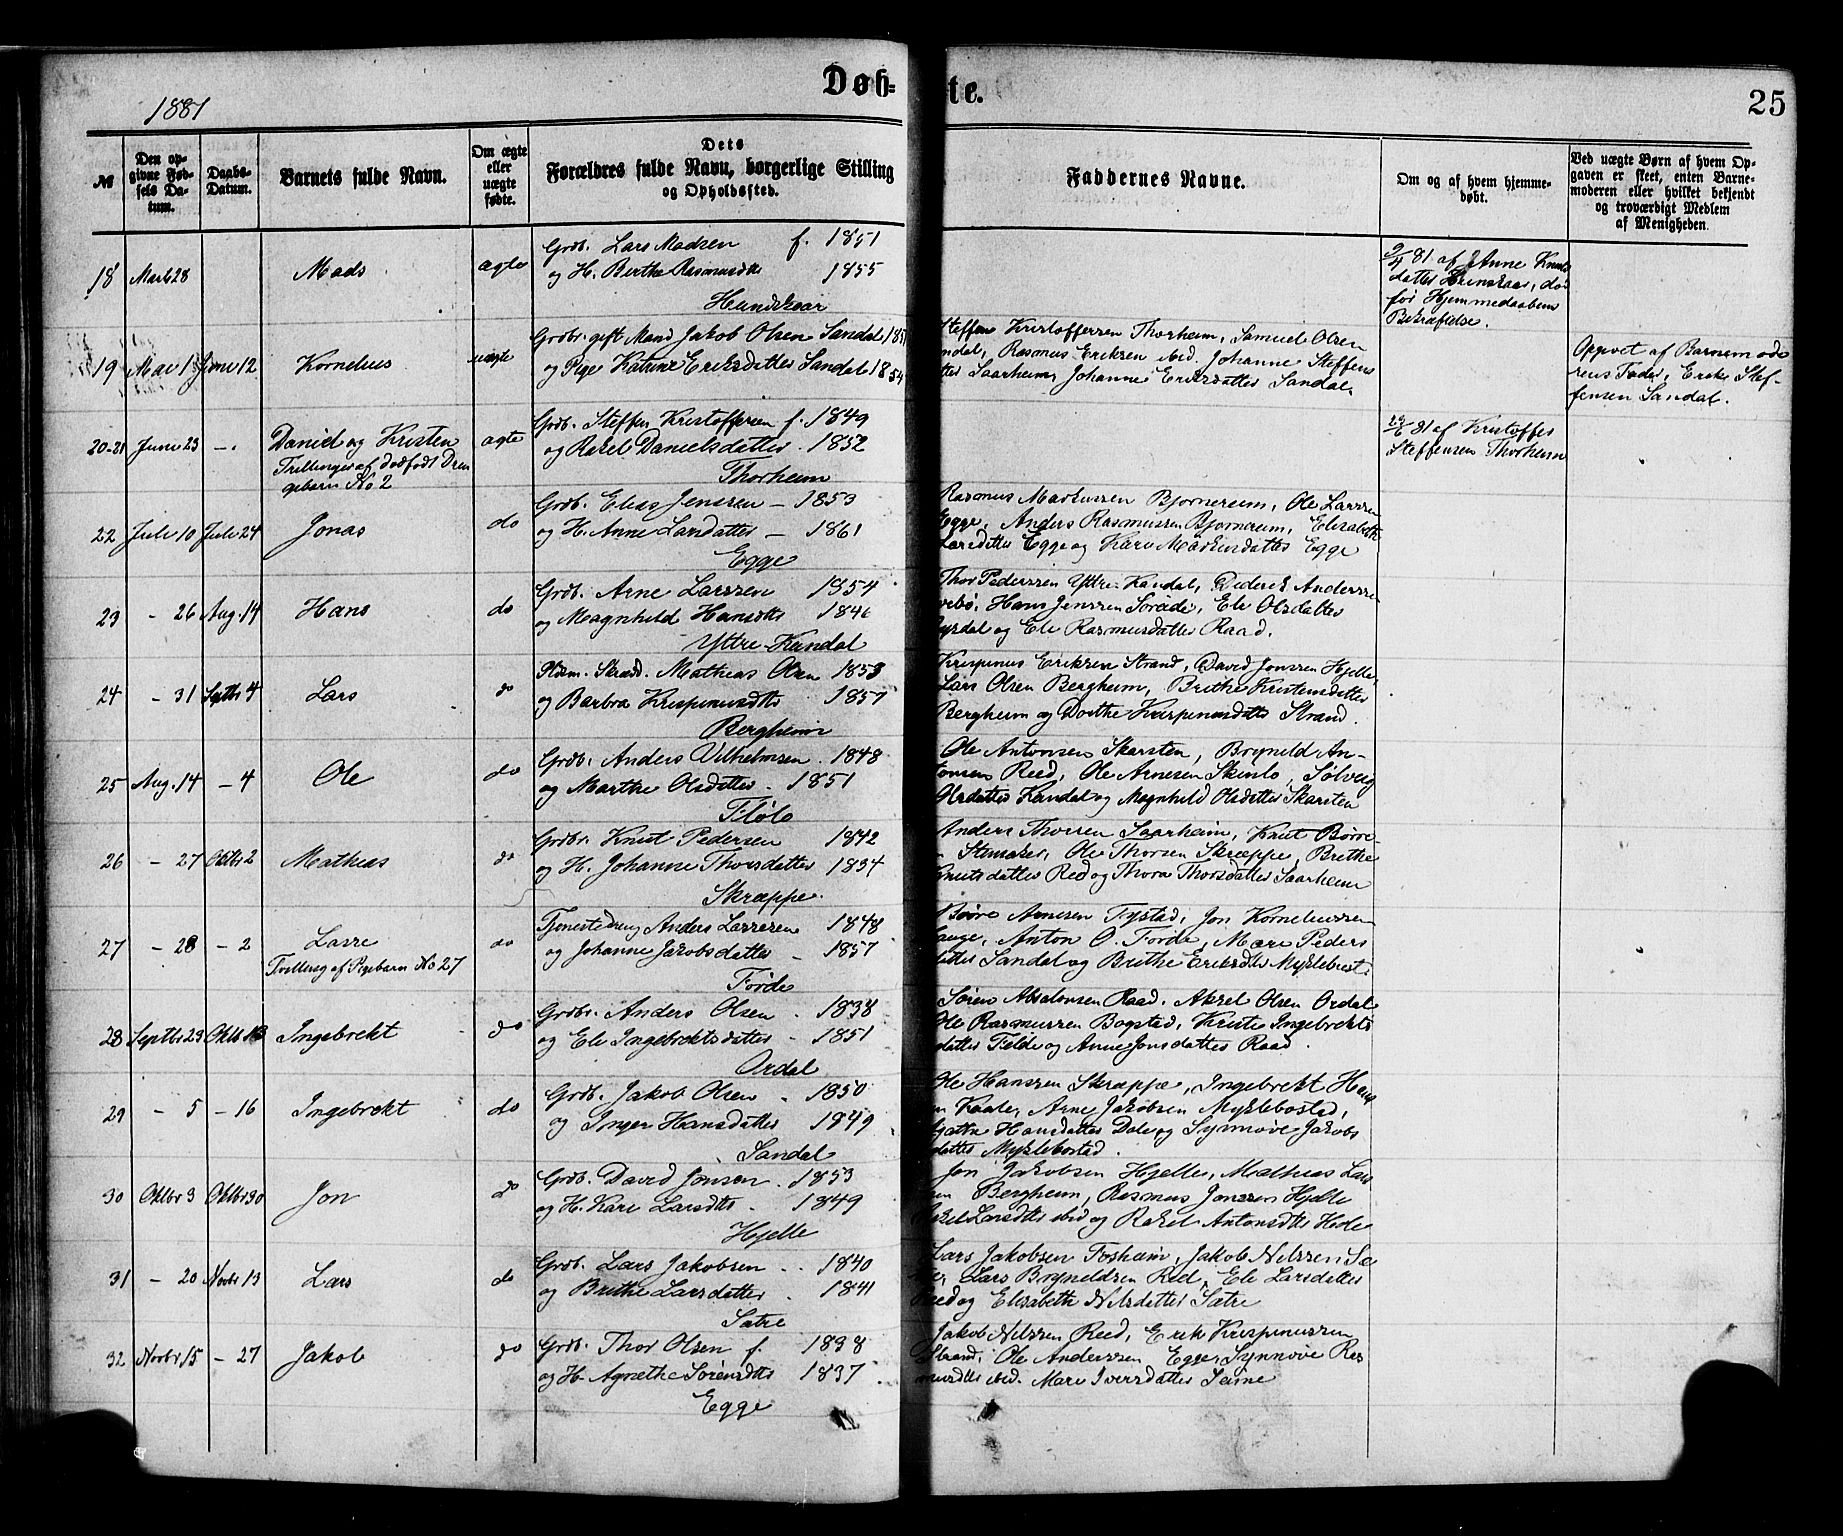 Døb=
te.
25
1881
№
Den op-
givne Fød-
sels Da-
tum.
Daabs-
Datum.
Barnets fulde Navn.
Om ægte
eller
uægte
fødte.
Dets
Forældres fulde Navn, borgerlige Stilling
og Opholdssted.
Faddernes Navne.
Om og af hvem hjemme-
døbt.
Ved uægte Børn af hvem Op-
gaven er skeet, enten Barne-
moderen eller hvilket bekjendt
og troværdigt Medlem
af Menigheden.
18 Marts 28 Mads ægte Grdb. Lars Madsen f. 1851
og H. Berthe Rasmusdtr 1855
Hundskaar
2/4 81 af Anne Knuts
datter Hundskaar, død
før Hjemmedaabens
Bekræftelse.
19 Mai Juni 12 Kornelius uægte Grdbr. gift Mand Jakob Olsen Sandal
og Pige Katrine Eriksdatter Sandal 1854
Steffen Kristoffersen Thorheim, Samuel Olsen
ndal, Rasmus Eriksen ibid. Johanne Steffens
tter Saarheim, Johanne Eriksdatter Sandal.
Opgivet af Barnemode
rens Fader, Erik Stef-
fensen Sandal.
20-21 Juni 23 -. Daniel og Kristen ægte Grdb. Steffen Kristoffersen f. 1849
og Rakel Danielsdatter. 1852
Thorheim
Trillinger af dødfødt Dren
gebarn No 2
81 af Kristoffer
Steffensen Thorheim
22 Juli 10 Juli 24 Jonas do Grdb. Elias Jenssen - 1853
og H. Anne Larsdatter - 1861
Egge
Rasmus Markussen Bjørnereim, Ole Larssen
Egge, Anders Rasmussen Bjørnereim, Elisabeth
Larsdatter Egge og Kari Markusdatter Egge
23 - 26 Aug. 14 Hans do Grdb. Arne Larssen 1854
og Magnhild Hansdtr 1846
Yttre Kandal
Thor Pederssen Yttre-Kandal, Diderik Anderssen
Hans Jenssen Søreide, Eli Olsdatter
og Eli Rasmusdatter Raad.
24 - 31 Septbr 4 Lars do Pldsm. Skræd. Mathias Olsen 1853
og Barbra Krispinusdtr 1857
Bergheim
Krispinus Eriksen Strand, David Jonssen Hjelle,
Lars Olsen Bergheim, Brithe Kristensdatter
Bergheim og Dorthe Krispinusdatter Strand.
25 Aug. 14 - 4 Ole do Grdb. Anders Vilhelmsen. 1848
og Marthe Olsdatter. 1851
Fløtо
Ole Antonsen Skarsten, Bryneld An-
tonsen Reed, Ole Arnesen Skinlo, Sølvug
Olsdatter Kandal og Magnhild Olsdatter Skarsten
26 - 27 Oktbr 2 Mathias do Grdbr. Knut Pedersen 1842
og H. Johanne Thorsdatter 1834
Skræppe.
Anders Thorsen Saarheim, Knut Børre
Ole Thorsen Skræppe, Brithe
Knutsdatter Red og Thora Thorsdatter Saarheim
27 - 28 - 2 Lasse do Tjenestedreng Anders Larssen 1848
og Johanne Jakobsdatter - 1857
Førde
Tvilling af Pigebarn No 27
Børre Arnesen Fystad, Jon Korneliussen
Anton O. Førde, Mari Peders
datter Sandal og Brithe Eriksdtr Myklebust
28 Septbr 23 Oktb Ingebrekt do Grdbr. Anders Olsen . 1838
og Eli Ingebrektsdatter . 1851
Ordal
Søren Absalonsen Raad. Aksel Olsen Ordal
Ole Rasmussen Bogstad, Kristi Ingebrekts
datter Felde og Anne Jonsdatter Raad.
29 - 5 - 16 Ingebrekt do Grdb. Jakob Olsen . 1850
og Inger Hansdatter 1849
Sandal
Ole Hanssen Skræppe, Ingebrekt Hans
en Arne Jakobsen Myklebostad,
Agathe Hansdatter Dale og Synnøve Jakobs
datter Myklebostad.
30 Oktbr 3 Oktbr 30 Jon do Grdb. David Jonsen . 1853
og H. Kari Larsdtr . 1849
Hjelle
Jon Jakobsen Hjelle, Mathias Lars
en Bergheim, Rasmus Jonssen Hjelle
Larsdtr ibid og Rakel Antonsdtr Hjelle
31 - 20 Novbr 13 Lars do Grdb. Lars Jakobsen . . 1840
og Brithe Larsdatter . 1841
Sætre
Lars Jakobsen Fosheim, Jakob Nilssen Sæ
Lars Bryneldsen Red, Eli Larsdatter
Reed og Elisabeth Nilsdatter Sætre
32 Novbr 15 - 27 Jakob do Grdb. Thor Olsen f. 1838
og H. Agnethe Sørensdtr 1837
Egge
Jakob Nilssen Reed, Erik Krispinussen
Strand, Ole Anderssen Egge, Synnøve Ras
musdtr ibid. Mari Iversdatter Seime